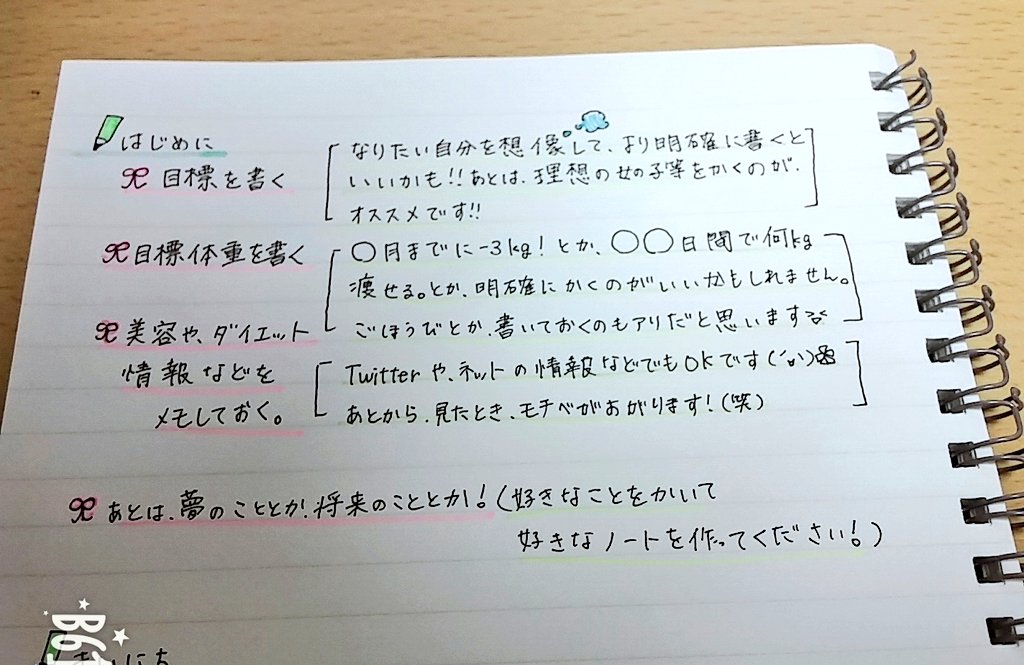 はじめに
目標を書く
なりたい自分を想像して、より明確に書くと
いいかも!!あとは、理想の女の子等をかくのが、
オススメです!!
目標体重を書く
○月までに-3kg!とか、○○日間で何kg
痩せる。とか、明確にかくのがいいかもしれません。
ごほうびとか、書いておくのもアリだと思います
美容や、ダイエット
情報などを
メモしておく。
Twitterや、ネットの情報などでもOKです
あとから、見たとき、モチベがあがります!(笑)
あとは、夢のこととか!将来のこととか!(好きなことをかいて
好きなノートを作ってください!)